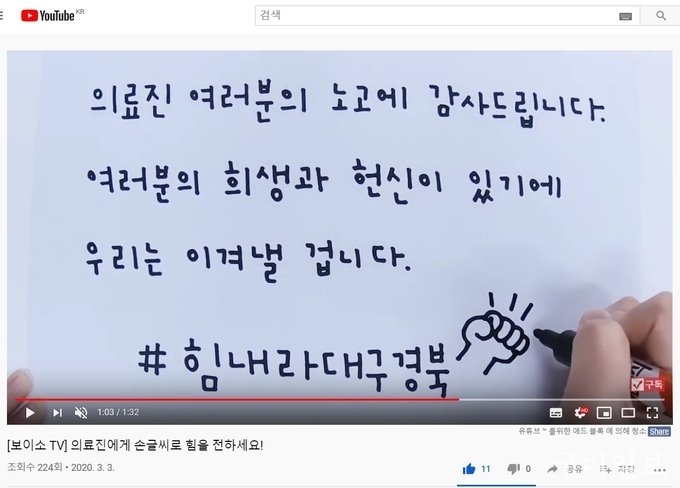 YouTube KR
검색
의료진 여러분의 노고에 감사드립니다.
여러분의 희생과 헌신이 있기에
우리는 이겨낼 겁니다.
#힘내라대구경북
구독
1:03 / 1:32
HD
유튜브™를위한 애드 블록 에 의해 청소 Share
[보이소 TV] 의료진에게 손글씨로 힘을 전하세요!
조회수 224회 • 2020. 3. 3.
11 0 공유 저장
구미일보